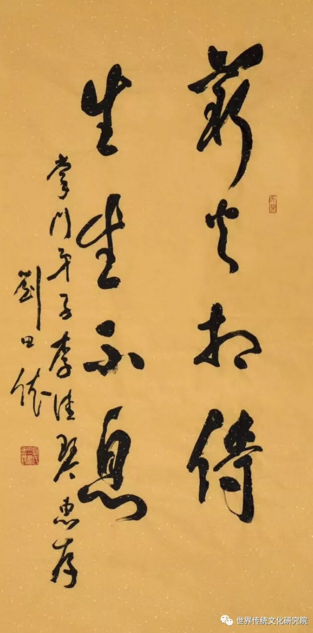 薪火相傳
生生不息
掌门弟子李佳琴惠存
劉
世界传统文化研究院